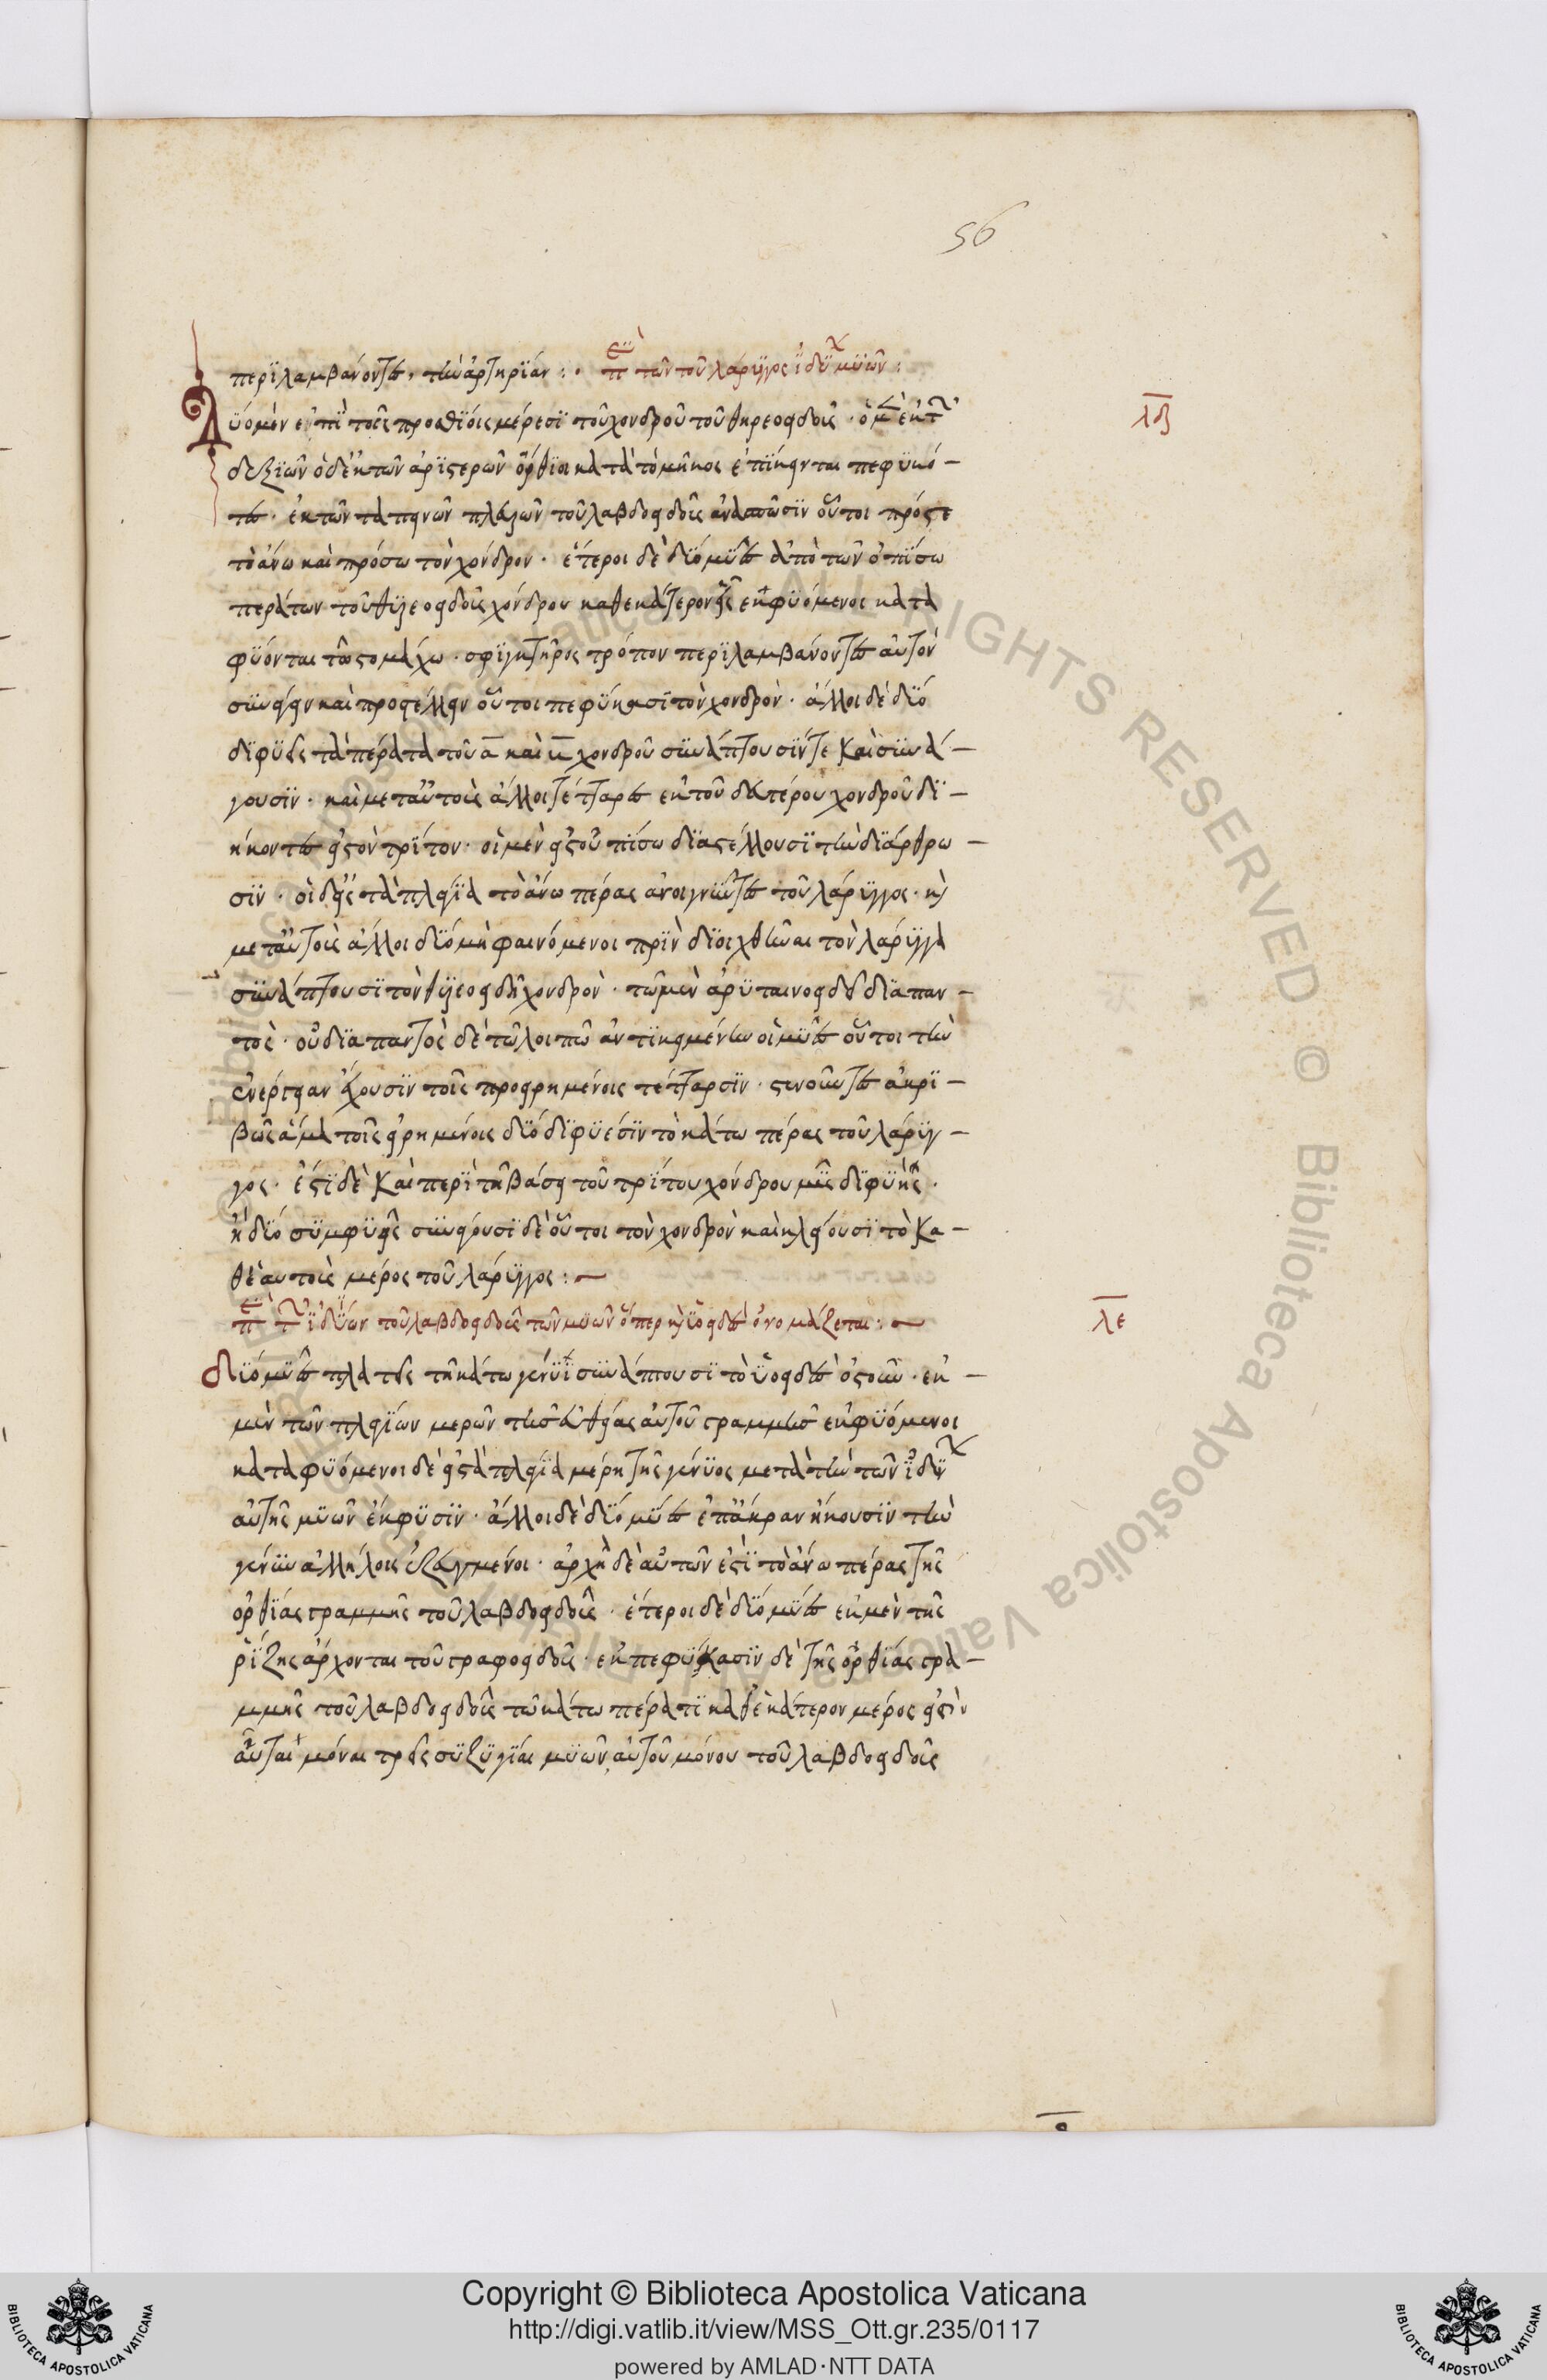 56
περϊλαμβάνοντες, τὴν ἀρτηρίαν :· περὶ τῶν τοῦ λάρυγγος ἰδίων μυῶν :
λδ
Δύο μὲν ἐπὶ τοῖς προσθίοις μέρεσι τοῦ χονδροῦ τοῦ θηρεοειδοῦς · ὁ μὲν ἐκ τῶν
δεξιῶν ὁ δ' ἐκ τῶν ἀριστερῶν ὄρθιοι κατὰ τὸ μῆκος ἐπίκεινται πεφυκό –
τες · ἐκ τῶν ταπεινῶν πλευρῶν τοῦ λαβδοειδοῦς ἀνασπῶσιν οὗτοι πρόστε
τὸ ἄνω καὶ πρόσω τὸν χόνδρον · ἕτεροι δὲ δύο μύες ἀπὸ τῶν ὀπίσω
περάτων τοῦ θυρεοειδοῦς χόνδρου καθ' ἑκάτερον εἷς ἐκφυόμενος κατα
φύονται τῶ στομάχω · σφιγκτῆρος τρόπον περιλαμβάνοντες αὐτὸν
συνάγειν καὶ προστέλλειν οὗτοι πεφύκασι τὸν χονδρὸν · ἄλλοι δὲ δύο
διφυεῖς τὰ πέρατα τοῦ α καὶ β χονδροῦ συνάπτουσίν τε καὶ συνά –
γουσιν · καὶ μετ' αὐτοὺς ἄλλοι τέτταρες ἐκ τοῦ δευτέρου χονδροῦ δι –
ήκοντες εἰς τὸν τρίτον · οἱ μὲν εἰς τοὐπίσω διαστέλλουσι τὴν διάρθρω –
σιν · οἱ δ' εἰς τὰ πλάγια τὸ ἄνω πέρας ἀνοιγνύντες τοῦ λάρυγγος · καὶ
μετ' αὐτοὺς ἄλλοι δύο μὴ φαινόμενοι πρὶν διοιχθῆναι τὸν λάρυγγα
συνάπτουσι τὸν θυρεοειδῆ χονδρὸν · τῶ μὲν ἀρυταινοειδεῖ διαπαν –
τὸς · οὐ διαπαντὸς δὲ τῶ λοιπῶ ἀντικειμένην οἱ μύες οὗτοι τὴν
ἐνέργειαν ἔχουσιν τοῖς προειρημένοις τέτταρσιν · στενοῦντες ἀκρι –
βῶς ἅμα τοῖς εἰρημένοις δύο διφυέσιν τὸ κάτω πέρας τοῦ λάρυγ –
γος · ἔστι δὲ καὶ περὶ τῆ βάσει τοῦ τρίτου χόνδρου μῦς διφυὴς εἷς ·
ἢ δύο συμφυεῖς συνάγουσι δὲ οὗτοι τὸν χονδρὸν καὶ κλείουσι τὸ κα –
θ' ἑαυτοὺς μέρος τοῦ λάρυγγος : ~
περὶ τῶν ἰδίων τοῦ λαβδοειδοῦς τῶν μυῶν ὅπερ καὶ ὑοειδὲς ὀνομάζεται : ~
λε
Δύο μύες πλατεῖς τῆ κάτω γένυϊ συνάπτουσι τὸ ὑοειδὲς ὀστοῦν · ἐκ –
μὲν τῶν πλαγίων μερῶν τῆς εὐθείας αὐτοῦ γραμμῆς ἐκφυόμενοι
καταφυόμενοι δὲ εἰς τὰ πλάγια μέρη τῆς γένυος μετὰ τὴν τῶν ἰδίων
αὐτῆς μυῶν ἔκφυσιν · ἄλλοι δὲ δύο μύες ἐπ' ἄκραν ἥκουσιν τὴν
γένυν ἀλλήλοις ἐζευγμένοι · ἀρχὴ δὲ αὐτῶν ἐστὶ τὸ ἄνω πέρας τῆς
ὀρθίας γραμμῆς τοῦ λαβδοειδοῦς · ἕτεροι δὲ δύο μύες ἐκ μὲν τῆς
ῥίζης ἄρχονται τοῦ γραφοειδοῦς · ἐκπεφύκασιν δὲ τῆς ὀρθίας γρα –
μμῆς τοῦ λαβδοειδοῦς τῶ κάτω πέρατι καθ' ἑκάτερον μέρος εἰσὶν
αὗται μόναι τρεῖς συζυγίαι μυῶν αὐτοῦ μόνου τοῦ λαβδοειδοῦς
Copyright © Biblioteca Apostolica Vaticana
http://digi.vatlib.it/view/MSS_Ott.gr.235/0117
powered by AMLAD·NTT DATA
BIBLIOTECA APOSTOLICA VATICANA
BIBLIOTECA APOSTOLICA VATICANA